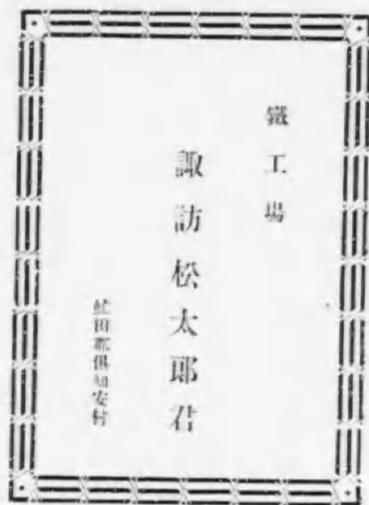 鐵工場
諏訪松太郎君
虻田郡倶知安村